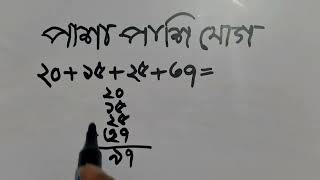 পাশা পাশি যোগ
২০+১৫+২৫+৩৭=
২০
১৫
২৫
৩৭
৯৭